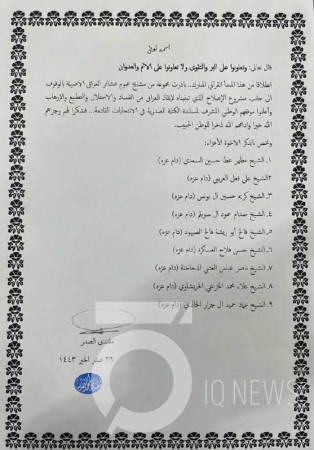 بسمه تعالى
قال تعالى: وتعاونوا على البر والتقوى ولا تعاونوا على الاثم والعدوان
انطلاقا من هذا المبدأ القرآني المبارك.. بادرت مجموعة من مشايخ عموم عشائر العراق الاصيلة بالوقوف
الى جانب مشروع الإصلاح الذي تبنيناه لإنقاذ العراق من الفساد والاحتلال والتطبيع والإرهاب
وأعلنوا موقفهم الوطني المشرف لمساندة الكتلة الصدرية في الانتخابات القادمة.. فشكرا لهم وجزاهم
الله خيرا وادامهم الله ذخرا للوطن الحبيب.
ونخص بالذكر الاخوة الأعزاء:
١. الشيخ مظهر عطا حسين السعدي (دام عزه)
٢. الشيخ علي فعل العريبي (دام عزه)
٣. الشيخ كريم حسين ال يونس (دام عزه)
٤. الشيخ صدام حمود ال صويلم (دام عزه)
٥. الشيخ فالح أبو ريشة فالح الصيهود (دام عزه)
٦. الشيخ حسن فلاح العسكرد (دام عزه)
٧. الشيخ ناصر عباس (دام عزه)
٨. الشيخ علاء محمد الخزاعي (دام عزه)
٩. الشيخ عباد حميد ال جزار (دام عزه)
مقتدى الصدر
٢٦ صفر الخير ١٤٤٣
IQ NEWS